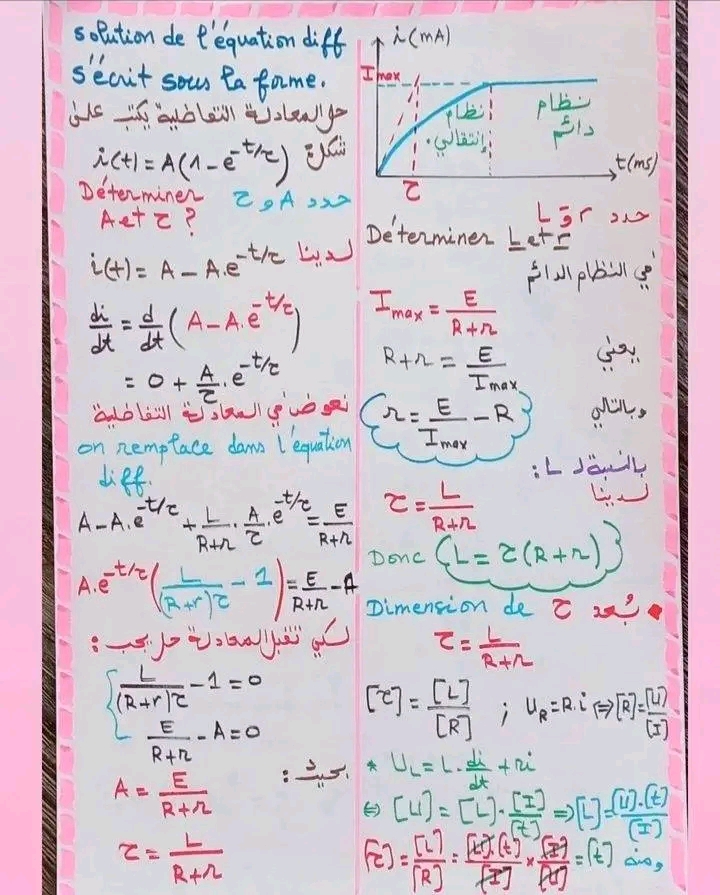 solution de l'équation diff
s'écrit sous la forme.
حل المعادلة التفاضلية يكتب على
شكل:
i(t) = A(1 - e^-t/τ)
Déterminer
A et τ ?
حدد A و τ
لدينا i(t) = A - A.e^-t/τ
di/dt = d/dt (A - A.e^-t/τ)
= 0 + A/τ . e^-t/τ
نعوض في المعادلة التفاضلية
on remplace dans l'équation
diff.
A - A.e^-t/τ + L/(R+r) . A/τ . e^-t/τ = E/(R+r)
A.e^-t/τ (L/((R+r)τ) - 1) = E/(R+r) - A
لكي تقبل المعادلة حل يجب :
L/((R+r)τ) - 1 = 0
E/(R+r) - A = 0
بحيث :
A = E/(R+r)
τ = L/(R+r)
i(mA)
Imax
نظام
إنتقالي.
نظام
دائم
t(ms)
τ
حدد r و L
Déterminer L et r
في النظام الدائم
Imax = E/(R+r)
يعني R+r = E/Imax
وبالتالي r = E/Imax - R
بالنسبة ل L :
لدينا
τ = L/(R+r)
Donc L = τ(R+r)
Dimension de τ بُعد τ •
τ = L/(R+r)
[τ] = [L]/[R] ; UR = R.i ⇔ [R] = [U]/[I]
* UL = L.di/dt + ri
⇔ [U] = [L].[I]/[t] ⇒ [L] = [U].[t]/[I]
ومنه [τ] = [L]/[R] = [U].[t]/[I] × [I]/[U] = [t]